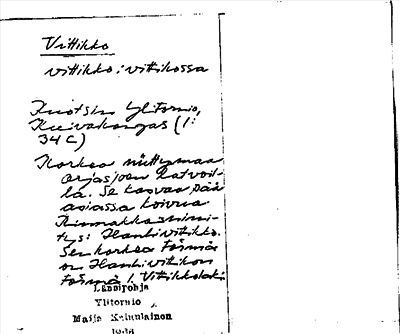 Vittikko
vittikko : vitikossa
Ruotsin Ylitornio,
Kuivakangas (1:
34 C)
Korkea niittymaa
Orjasjoen latvoil-
la. Se kasvaa pää
asiassa koivua
Rinnakkaisnimi-
tys: Hanhivittikko.
Sen korkea törmä
on Hanhivitikon
törmä l. Vittikkolaki
Länsipohja
Ylitornio
Maija Kainulainen